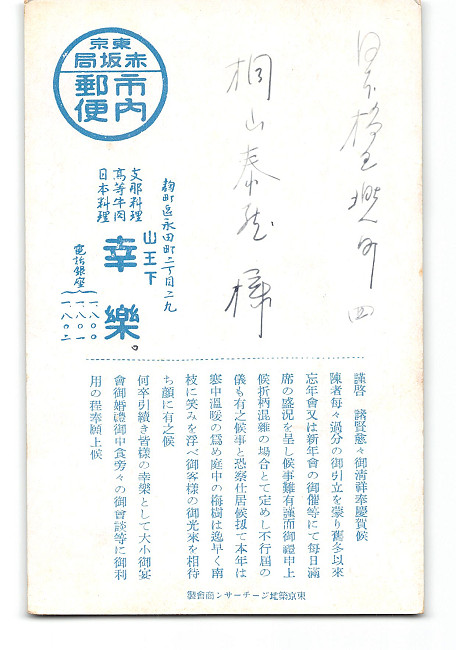 東京
赤坂局
市内
郵便
桐山泰 様
麹町區永田町二丁目二九
山王下
幸樂。
支那料理
高等牛肉
日本料理
電話銀座
一、八〇〇
一、八〇一
一、八〇二
謹啓 諸賢愈々御清祥奉慶賀候
陳者每々過分の御引立を蒙り舊冬以來
忘年會又は新年會の御催等にて每日滿
席の盛況を呈し候事難有謹而御禮申上
候折柄混雜の場合とて定めし不行屆の
儀も有之候事と恐察仕居候扨て本年は
寒中溫暖の爲め庭中の梅樹は逸早く南
枝に笑みを浮べ御客樣の御光來を相待
ち顏に有之候
何卒引續き皆樣の幸樂として大小御宴
會御婚禮御中食旁々の御會談等に御利
用の程奉願上候
東京築地ジーチーサン商會製